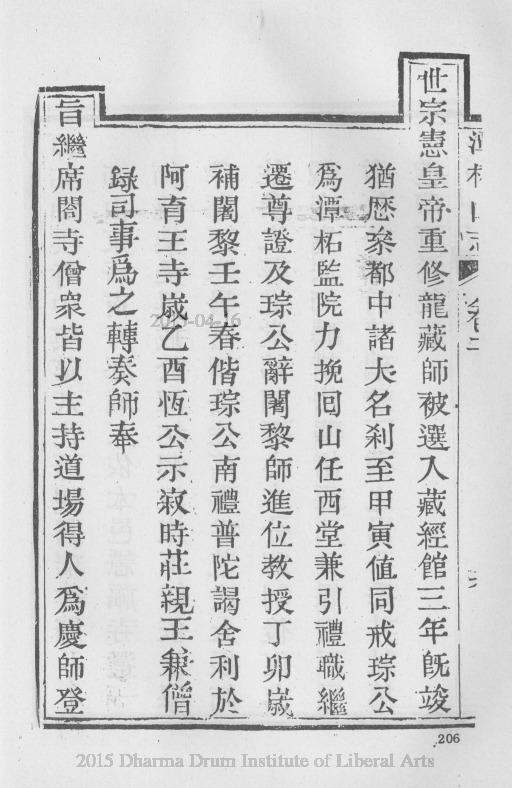 世宗憲皇帝重修龍藏師被選入藏經館三年旣竣
猶歷叅都中諸大名刹至甲寅値同戒琮公
爲潭柘監院力挽回山任西堂兼引禮職繼
遷尊證及琮公辭闍黎師進位教授丁卯歲
補闍黎壬午春偕琮公南禮普陀謁舍利於
阿育王寺歲乙酉恆公示寂時莊親王兼僧
録司事爲之轉奏師奉
旨繼席閤寺僧衆皆以主持道場得人爲慶師登
206
2015-04-16
2015 Dharma Drum Institute of Liberal Arts